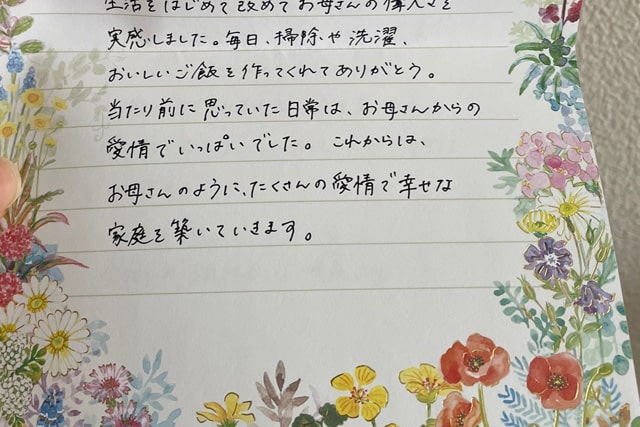 生活をはじめて改めてお母さんの偉大さを
実感しました。毎日、掃除や洗濯、
おいしいご飯を作ってくれてありがとう。
当たり前に思っていた日常は、お母さんからの
愛情でいっぱいでした。これからは、
お母さんのように、たくさんの愛情で幸せな
家庭を築いていきます。